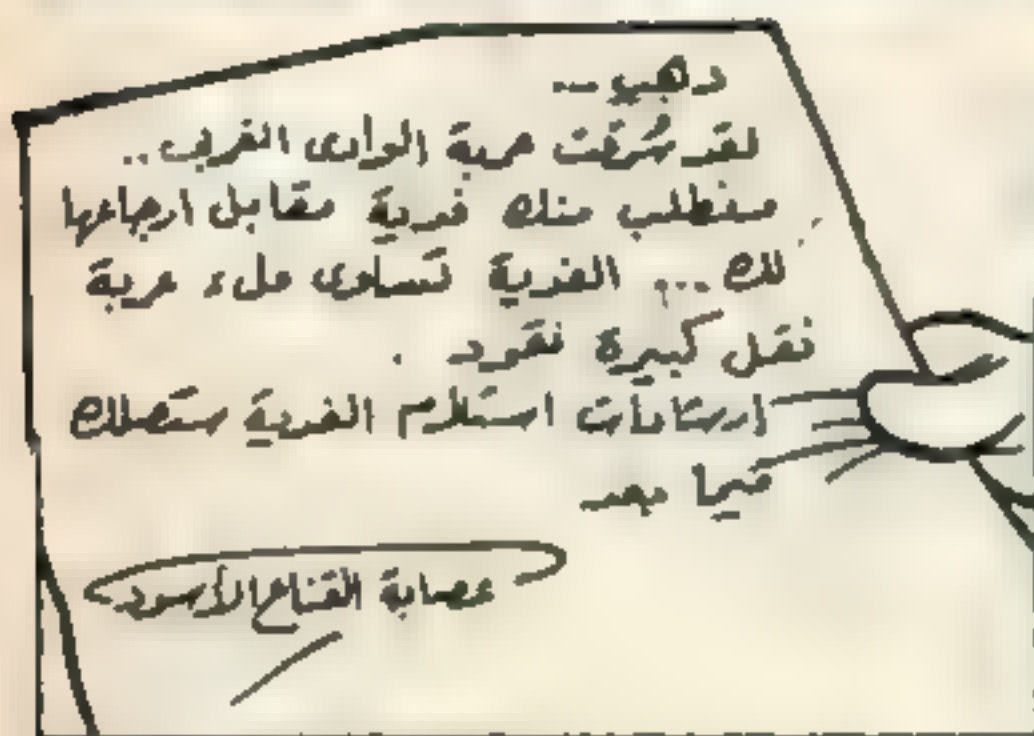 دهب ...
لقد سُرقت عربة الوادى الغريب ..
سنطلب منك فدية مقابل ارجاعها
لك ... الفدية تساوى ملء عربة
نقل كبيرة نقود .
ارشادات استلام الفدية ستصلك
فيما بعد
عصابة القناع الأسود